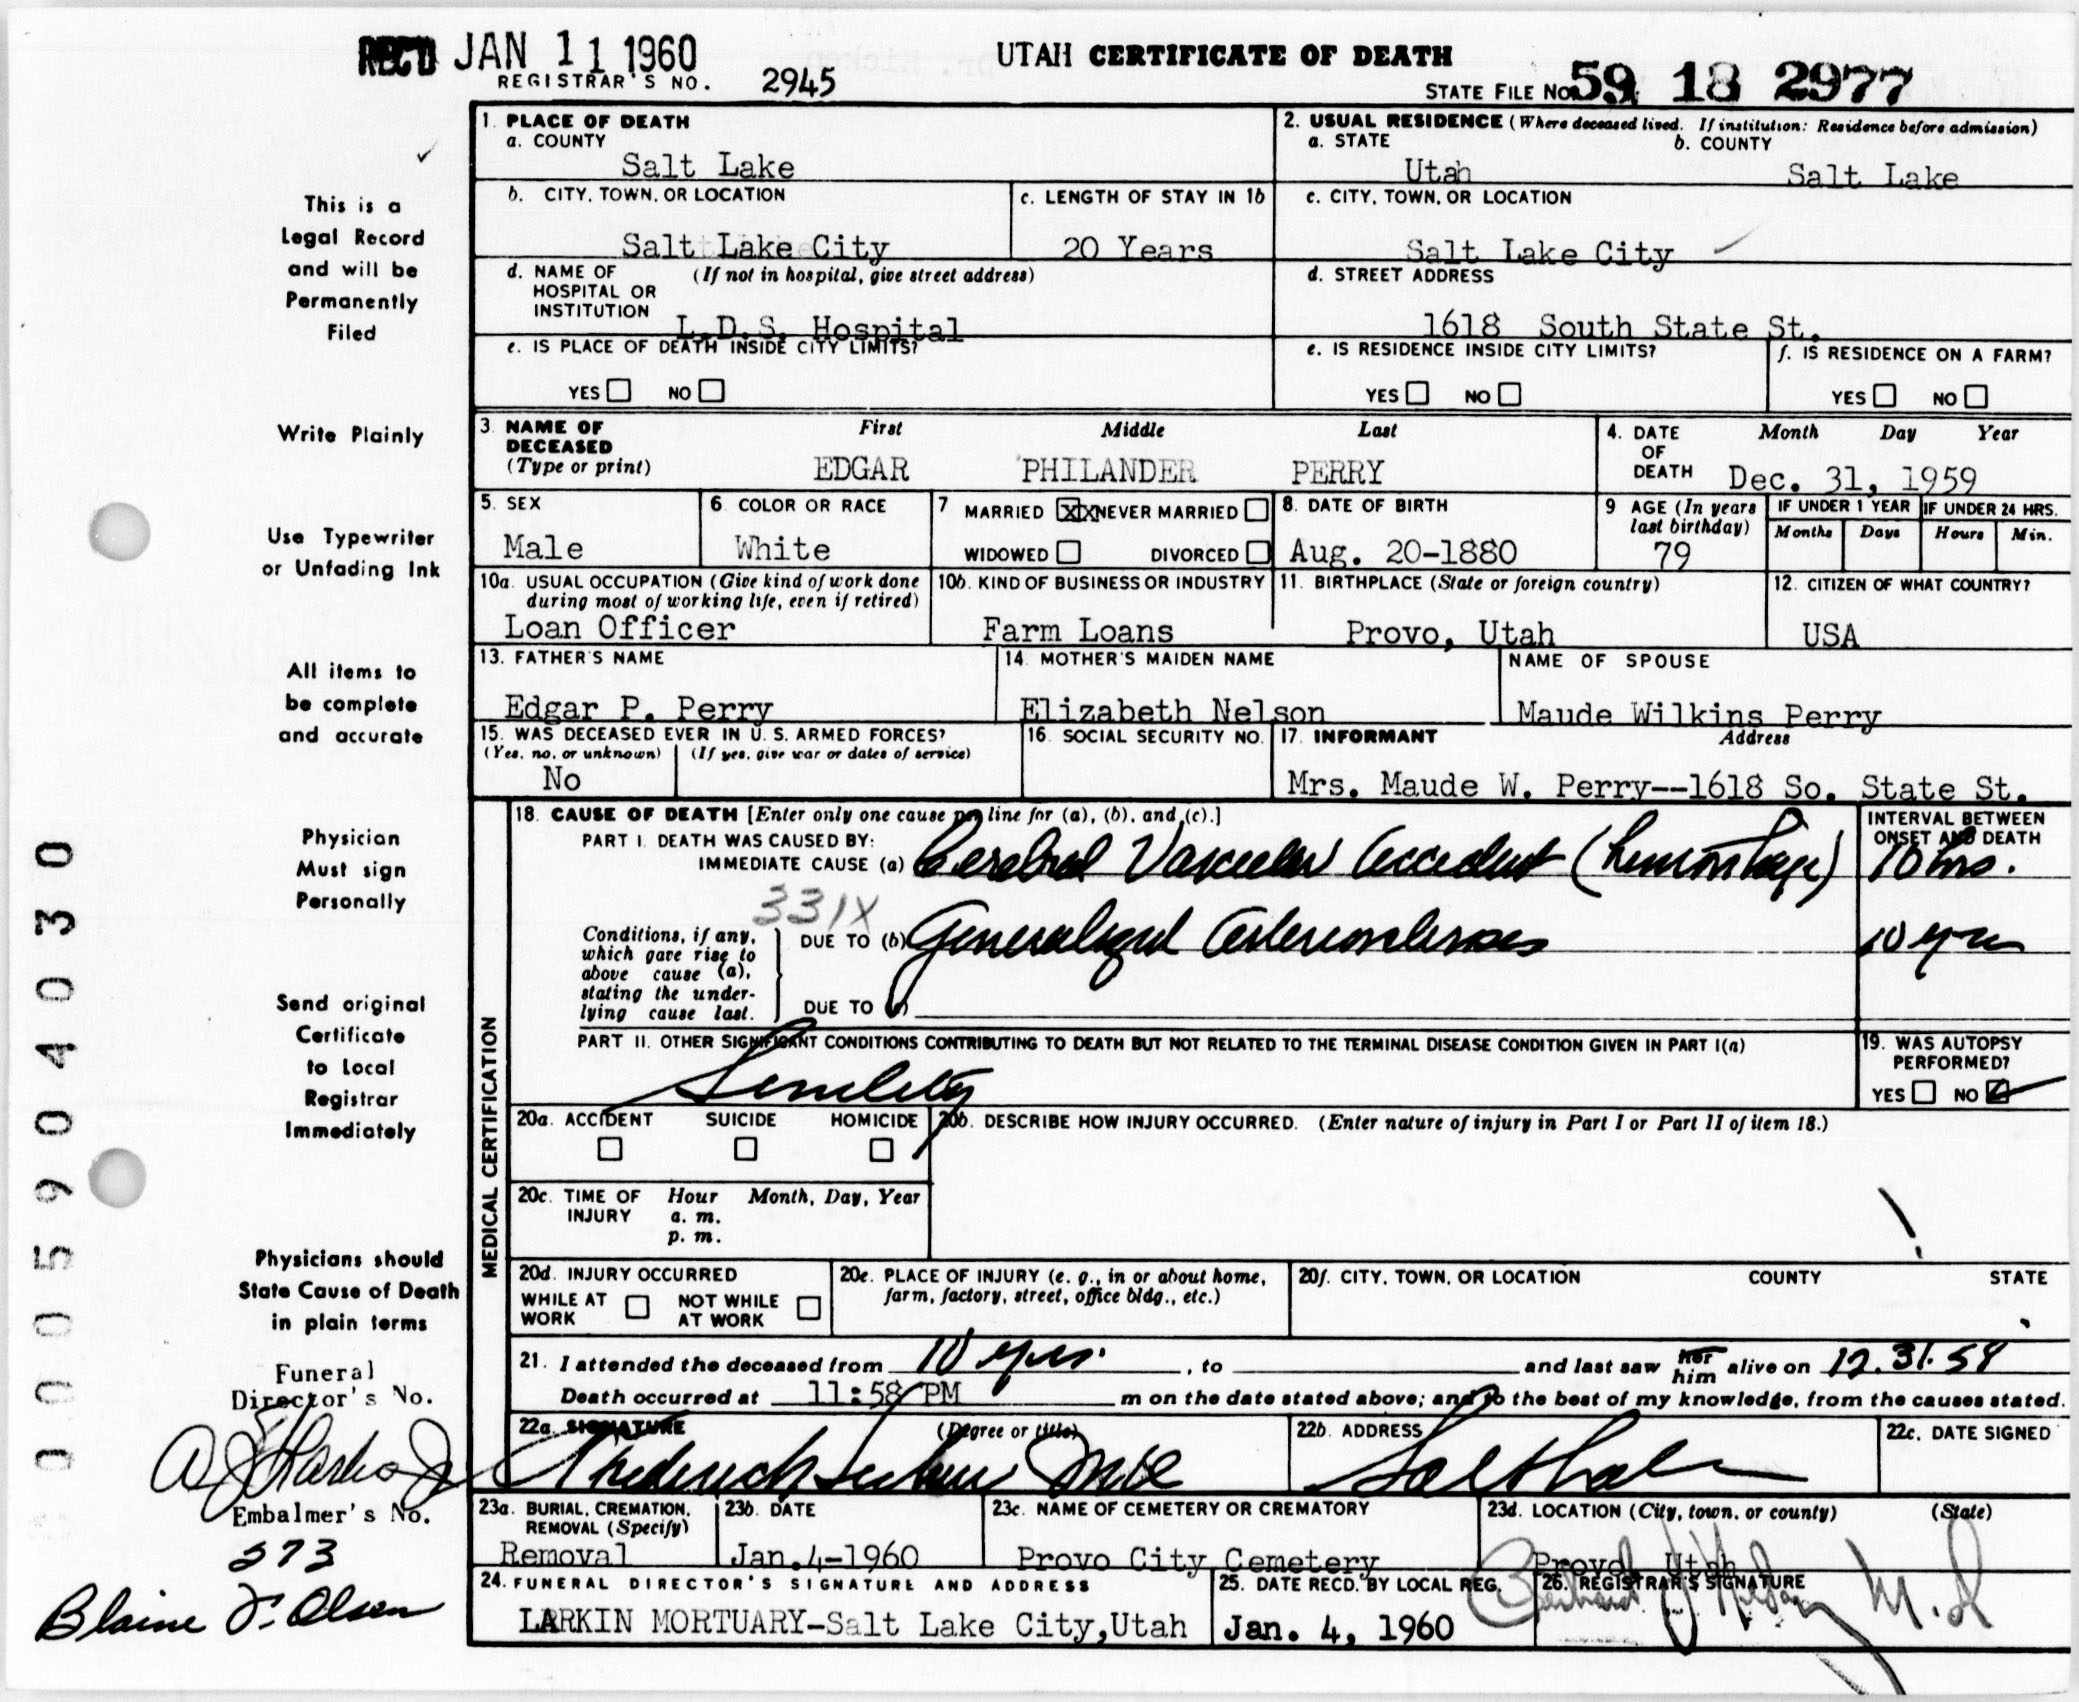 REC'D JAN 11 1960
UTAH CERTIFICATE OF DEATH
REGISTRAR'S NO. 2945
STATE FILE NO. 59 18 2977
1. PLACE OF DEATH
a. COUNTY
Salt Lake
2. USUAL RESIDENCE (Where deceased lived. If institution: Residence before admission)
a. STATE b. COUNTY
Utah Salt Lake
b. CITY, TOWN, OR LOCATION
Salt Lake City
c. LENGTH OF STAY IN 1b
20 Years
c. CITY, TOWN, OR LOCATION
Salt Lake City
d. NAME OF HOSPITAL OR INSTITUTION (If not in hospital, give street address)
L.D.S. Hospital
d. STREET ADDRESS
1618 South State St.
e. IS PLACE OF DEATH INSIDE CITY LIMITS?
YES NO
e. IS RESIDENCE INSIDE CITY LIMITS?
YES NO
f. IS RESIDENCE ON A FARM?
YES NO
3. NAME OF DECEASED (Type or print)
First Middle Last
EDGAR PHILANDER PERRY
4. DATE OF DEATH
Month Day Year
Dec. 31, 1959
5. SEX
Male
6. COLOR OR RACE
White
7. MARRIED XX NEVER MARRIED
WIDOWED DIVORCED
8. DATE OF BIRTH
Aug. 20-1880
9. AGE (In years last birthday)
79
IF UNDER 1 YEAR
Months Days
IF UNDER 24 HRS.
Hours Min.
10a. USUAL OCCUPATION (Give kind of work done during most of working life, even if retired)
Loan Officer
10b. KIND OF BUSINESS OR INDUSTRY
Farm Loans
11. BIRTHPLACE (State or foreign country)
Provo, Utah
12. CITIZEN OF WHAT COUNTRY?
USA
13. FATHER'S NAME
Edgar P. Perry
14. MOTHER'S MAIDEN NAME
Elizabeth Nelson
NAME OF SPOUSE
Maude Wilkins Perry
15. WAS DECEASED EVER IN U. S. ARMED FORCES?
(Yes, no, or unknown) (If yes, give war or dates of service)
No
16. SOCIAL SECURITY NO.
17. INFORMANT Address
Mrs. Maude W. Perry--1618 So. State St.
MEDICAL CERTIFICATION
18. CAUSE OF DEATH [Enter only one cause per line for (a), (b), and (c).]
PART I. DEATH WAS CAUSED BY:
IMMEDIATE CAUSE (a) Cerebral Vascular Accident (hemorrhage)
INTERVAL BETWEEN ONSET AND DEATH
10 hrs.
331X
Conditions, if any, which gave rise to above cause (a), stating the underlying cause last.
DUE TO (b) Generalized Arteriosclerosis
10 yrs
DUE TO (c)
PART II. OTHER SIGNIFICANT CONDITIONS CONTRIBUTING TO DEATH BUT NOT RELATED TO THE TERMINAL DISEASE CONDITION GIVEN IN PART I(a)
Senility
19. WAS AUTOPSY PERFORMED?
YES NO
20a. ACCIDENT SUICIDE HOMICIDE
20b. DESCRIBE HOW INJURY OCCURRED. (Enter nature of injury in Part I or Part II of item 18.)
20c. TIME OF INJURY Hour Month, Day, Year
a. m.
p. m.
20d. INJURY OCCURRED
WHILE AT WORK NOT WHILE AT WORK
20e. PLACE OF INJURY (e. g., in or about home, farm, factory, street, office bldg., etc.)
20f. CITY, TOWN, OR LOCATION COUNTY STATE
21. I attended the deceased from 10 yrs. , to and last saw her him alive on 12.31.59
Death occurred at 11:58 PM m on the date stated above; and to the best of my knowledge, from the causes stated.
22a. SIGNATURE (Degree or title)
22b. ADDRESS
Salt Lake
22c. DATE SIGNED
23a. BURIAL, CREMATION, REMOVAL (Specify)
Removal
23b. DATE
Jan.4-1960
23c. NAME OF CEMETERY OR CREMATORY
Provo City Cemetery
23d. LOCATION (City, town, or county) (State)
Provo, Utah
24. FUNERAL DIRECTOR'S SIGNATURE AND ADDRESS
LARKIN MORTUARY-Salt Lake City,Utah
25. DATE RECD. BY LOCAL REG.
Jan. 4, 1960
26. REGISTRAR'S SIGNATURE
M.D.
This is a
Legal Record
and will be
Permanently
Filed
Write Plainly
Use Typewriter
or Unfading Ink
All items to
be complete
and accurate
Physician
Must sign
Personally
Send original
Certificate
to Local
Registrar
Immediately
Physicians should
State Cause of Death
in plain terms
Funeral
Director's No.
Embalmer's No.
373
Blaine F. Olsen
005904030